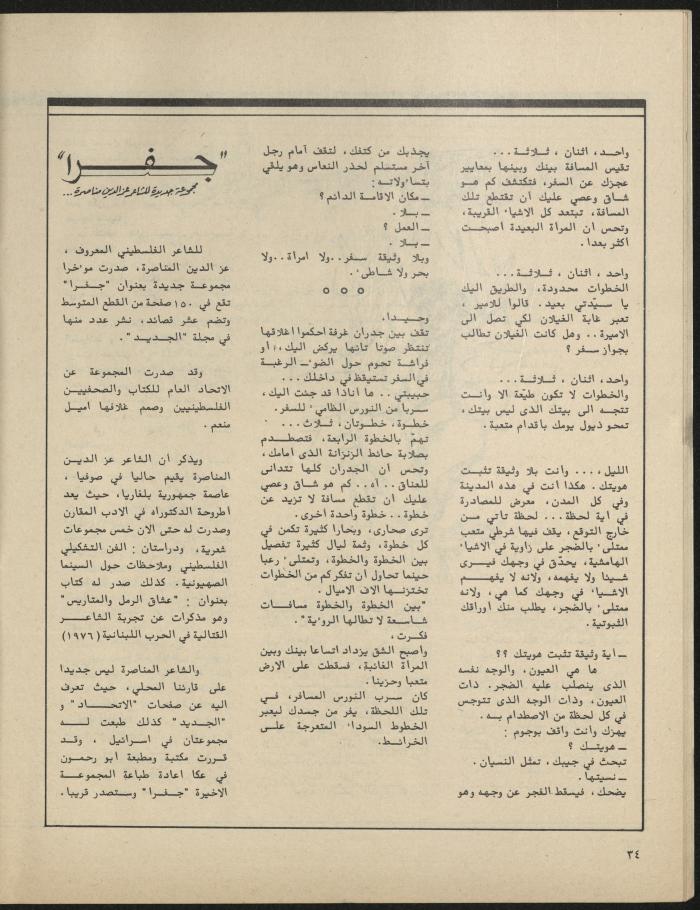 واحـد ، اثنان ، ثـلاثـة...
تقيس المسافة بينك وبينها بمعايير
عجزك عن السفر، فتكتشف كم هـو
شـاق وعصي عليك أن تقتطع تلك
المسافة، تبتعد كل الاشياء القريبة،
وتحس أن المرأة البعيدة اصبحـت
أكثر بعدا.
واحد ، اثنان ، ثـلاثـة...
الخطوات محدودة، والطريق اليك
يا سيّدتي بعيد. قالوا للامير ،
تعبر غابة الغيلان لكي تصل الى
الاميرة.. وهل كانت الغيلان تطالب
بجواز سـفر ؟
واحد، اثنان ، ثـلاثـة...
والخطوات لا تكون طيّعة الا وأنـت
تتجـه الى بيتك الذى ليس بيتك،
تمحو ذيول يومك بأقدام متعبة.
الليل،... وأنت بلا وثيقة تثبـت
هويتك. هكذا أنت في هذه المدينة
وفي كل المدن، معرض للمصادرة
في أية لحظة... لحظة تأتي مـن
خارج التوقع، يقف فيها شرطي متعب
ممتلىء بالضجر على زاوية في الاشياء
الهامشية، يحدّق في وجهك فيـرى
شيئا ولا يفهمه، ولانه لا يفهـم
الاشياء في وجهك كما هي، ولانه
ممتلىء بالضجر، يطلب منك أوراقك
الثبوتية.
ـ أية وثيقة تثبت هويتك ؟؟
ها هي العيون، والوجه نفسه
الذى ينصلب عليه الضجر. ذات
العيون، وذات الوجه الذى تتوجس
في كل لحظة من الاصطدام بـه.
يهزك وأنت واقف بوجوم :
ـ هويتـك ؟
تبحث في جيبك، تمثل النسيان.
ـ نسيتها.
يضحك، فيسقط الفجر عن وجهه وهو
يجذبك من كتفك، لتقف أمام رجل
آخر مستسلم لخدر النعاس وهو يلقي
بتساءولاتـه:
ـ مكان الاقامـة الدائم؟
ـ بـلا.
ـ العمل ؟
ـ بـلا.
وبلا وثيقة سـفر..ولا امرأة..ولا
بحر ولا شـاطىء.
o o o
وحـيـدا.
تقف بين جدران غرفة احكموا اغلاقها
تنتظر صوتا تائها يركض اليك، أو
فراشـة تحوم حول الضوء ـ الرغبـة
في السفر تستيقظ في داخلك...
حبيبتي .. ها أناذا قد جئت اليك،
سـربا من النورس الظامىء للسفر.
خطـوة، خطـوتان، ثـلاث...
تهمّ بالخطوة الرابعة، فتصطـدم
بصلابة حائط الزنزانة الذى أمامك،
وتحس أن الجدران كلها تتدانى
للعناق.. آه.. كم هو شـاق وعصي
عليك أن تقطع مسافة لا تزيد عن
خطوة.. خطوة واحدة أخرى.
ترى صحارى، وبحارا كثيرة تكمن في
كل خطوة، وثمة ليال كثيرة تفصيل
بين الخطوة والخطوة، وتمتلىء رعبا
حينما تحاول أن تفكر كم من الخطوات
تختزنـها الاف الاميال.
"بين الخطوة والخطوة مسافـات
شاسـعة لا تطالها الروءية".
فكـرت،
وأصبح الشق يزداد اتساعا بينك وبين
المرأة الغائبة، فسقطت على الارض
متعبا وحزينا.
كان سـرب النورس المسافر، فـي
تلك اللحظة، يفر من جسدك ليعبر
الخطوط السوداء المتعرجة علـى
الخرائـط.
"جـفـرا"
مجموعة جديدة للشاعر عز الدين مناصرة...
للشاعر الفلسطيني المعروف ،
عز الدين المناصرة، صدرت موءخرا
مجموعـة جديدة بعنوان "جـفـرا"
تقع في ١٥٠ صفحة من القطع المتوسط
وتضم عشر قصائد، نشر عدد منها
في مجلة "الجـديـد".
وقد صدرت المجموعة عن
الاتحاد العام للكتاب والصحفييـن
الفلسطينيين وصمم غلافها اميـل
منعم.
ويذكر أن الشاعر عز الديـن
المناصرة يقيم حاليا في صوفيا ،
عاصمة جمهورية بلغاريا، حيث يعد
اطروحة الدكتوراه في الادب المقارن
وصدرت له حتى الان خمس مجموعات
شعرية، ودراستان : الفن التشكيلي
الفلسطيني وملاحظات حول السينما
الصهيونية. كذلك صدر له كتاب
بعنوان : "عشاق الرمل والمتاريس"
وهو مذكرات عن تجربة الشاعـر
القتالية في الحرب اللبنانية (١٩٧٦)
والشاعر المناصرة ليس جديدا
على قارئنا المحلي، حيث تعرف
اليه عن صفحات "الاتحـاد" و
"الجـديد" كذلك طبعت لـه
مجموعتان في اسرائيل ، وقـد
قـررت مكتبة ومطبعة ابو رحمـون
في عكا اعادة طباعة المجموعـة
الاخيرة "جـفـرا" وستصدر قريبا.
٣٤